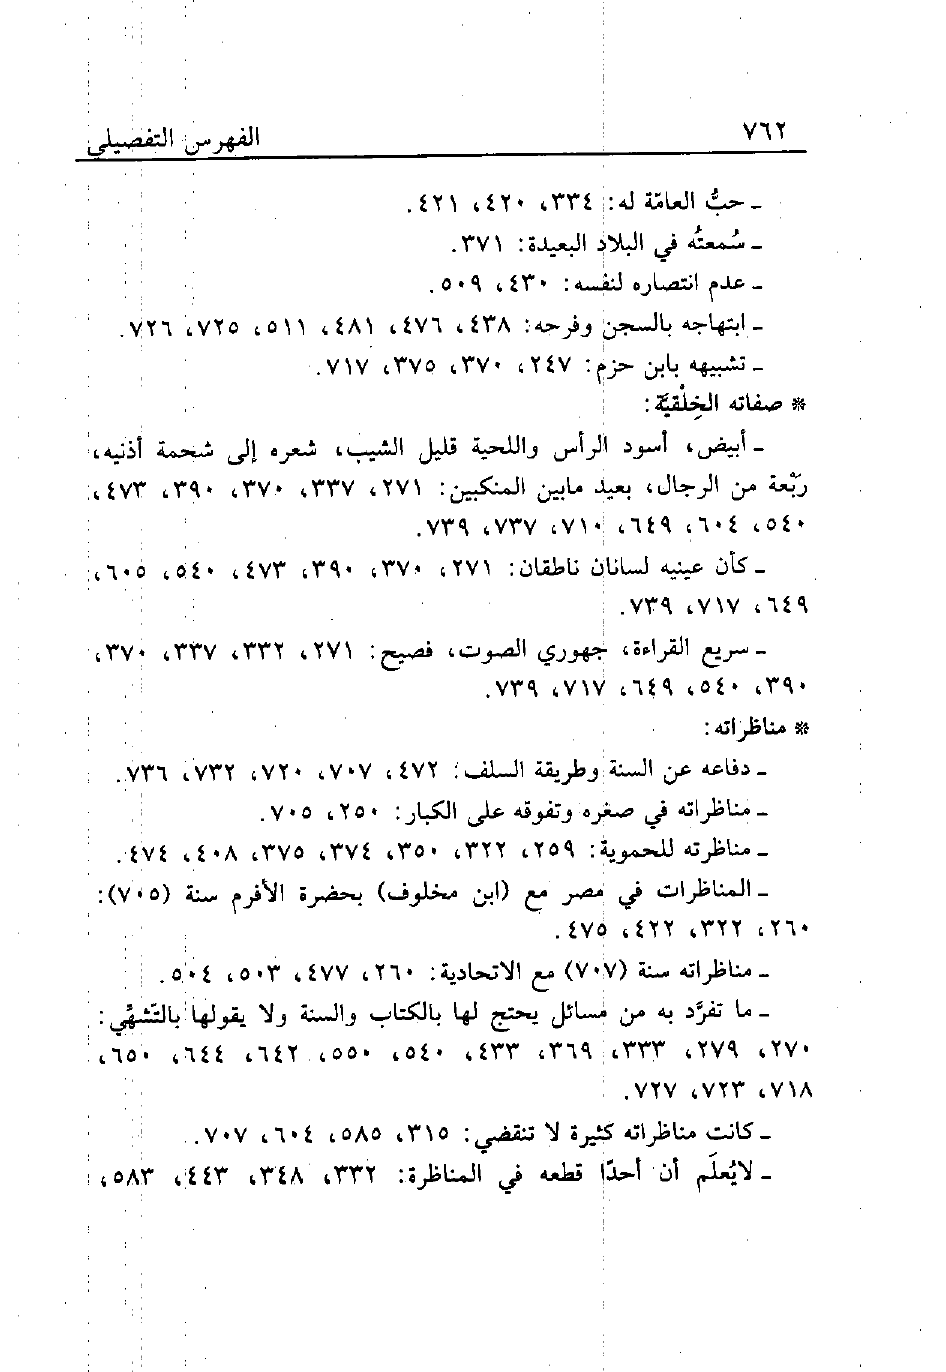 ٧٦٢
الفهرس التفصيلي
ـ حبُّ العامّة له: ٣٣٤، ٤٢٠، ٤٢١.
ـ سُمعتُه في البلاد البعيدة: ٣٧١.
ـ عدم انتصاره لنفسه: ٤٣٠، ٥٠٩.
ـ ابتهاجه بالسجن وفرحه: ٤٣٨، ٤٧٦، ٤٨١، ٥١١، ٧٢٥، ٧٢٦.
ـ تشبيهه بابن حزم: ٢٤٧، ٣٧٠، ٣٧٥، ٧١٧.
* صفاته الخِلْقيَّة:
ـ أبيض، أسود الرأس واللحية قليل الشيب، شعره إلى شحمة أذنيه،
رَبْعة من الرجال، بعيد مابين المنكبين: ٢٧١، ٣٣٧، ٣٧٠، ٣٩٠، ٤٧٣،
٥٤٠، ٦٠٤، ٦٤٩، ٧١٠، ٧٣٧، ٧٣٩.
ـ كأن عينيه لسانان ناطقان: ٢٧١، ٣٧٠، ٣٩٠، ٤٧٣، ٥٤٠، ٦٠٥،
٦٤٩، ٧١٧، ٧٣٩.
ـ سريع القراءة، جهوري الصوت، فصيح: ٢٧١، ٣٣٢، ٣٣٧، ٣٧٠،
٣٩٠، ٥٤٠، ٦٤٩، ٧١٧، ٧٣٩.
* مناظراته:
ـ دفاعه عن السنة وطريقة السلف: ٤٧٢، ٧٠٧، ٧٢٠، ٧٣٢، ٧٣٦.
ـ مناظراته في صغره وتفوقه على الكبار: ٢٥٠، ٧٠٥.
ـ مناظرته للحموية: ٢٥٩، ٣٢٢، ٣٥٠، ٣٧٤، ٣٧٥، ٤٠٨، ٤٧٤.
ـ المناظرات في مصر مع (ابن مخلوف) بحضرة الأفرم سنة (٧٠٥):
٢٦٠، ٣٢٢، ٤٢٢، ٤٧٥.
ـ مناظراته سنة (٧٠٧) مع الاتحادية: ٢٦٠، ٤٧٧، ٥٠٣، ٥٠٤.
ـ ما تفرَّد به من مسائل يحتج لها بالكتاب والسنة ولا يقولها بالتَّشهِّي:
٢٧٠، ٢٧٩، ٣٣٣، ٣٦٩، ٤٣٣، ٥٤٠، ٥٥٠، ٦٤٢، ٦٤٤، ٦٥٠،
٧١٨، ٧٢٣، ٧٢٧.
ـ كانت مناظراته كثيرة لا تنقضي: ٣١٥، ٥٨٥، ٦٠٤، ٧٠٧.
ـ لايُعلَم أن أحدًا قطعه في المناظرة: ٣٣٢، ٣٤٨، ٤٤٣، ٥٨٣،